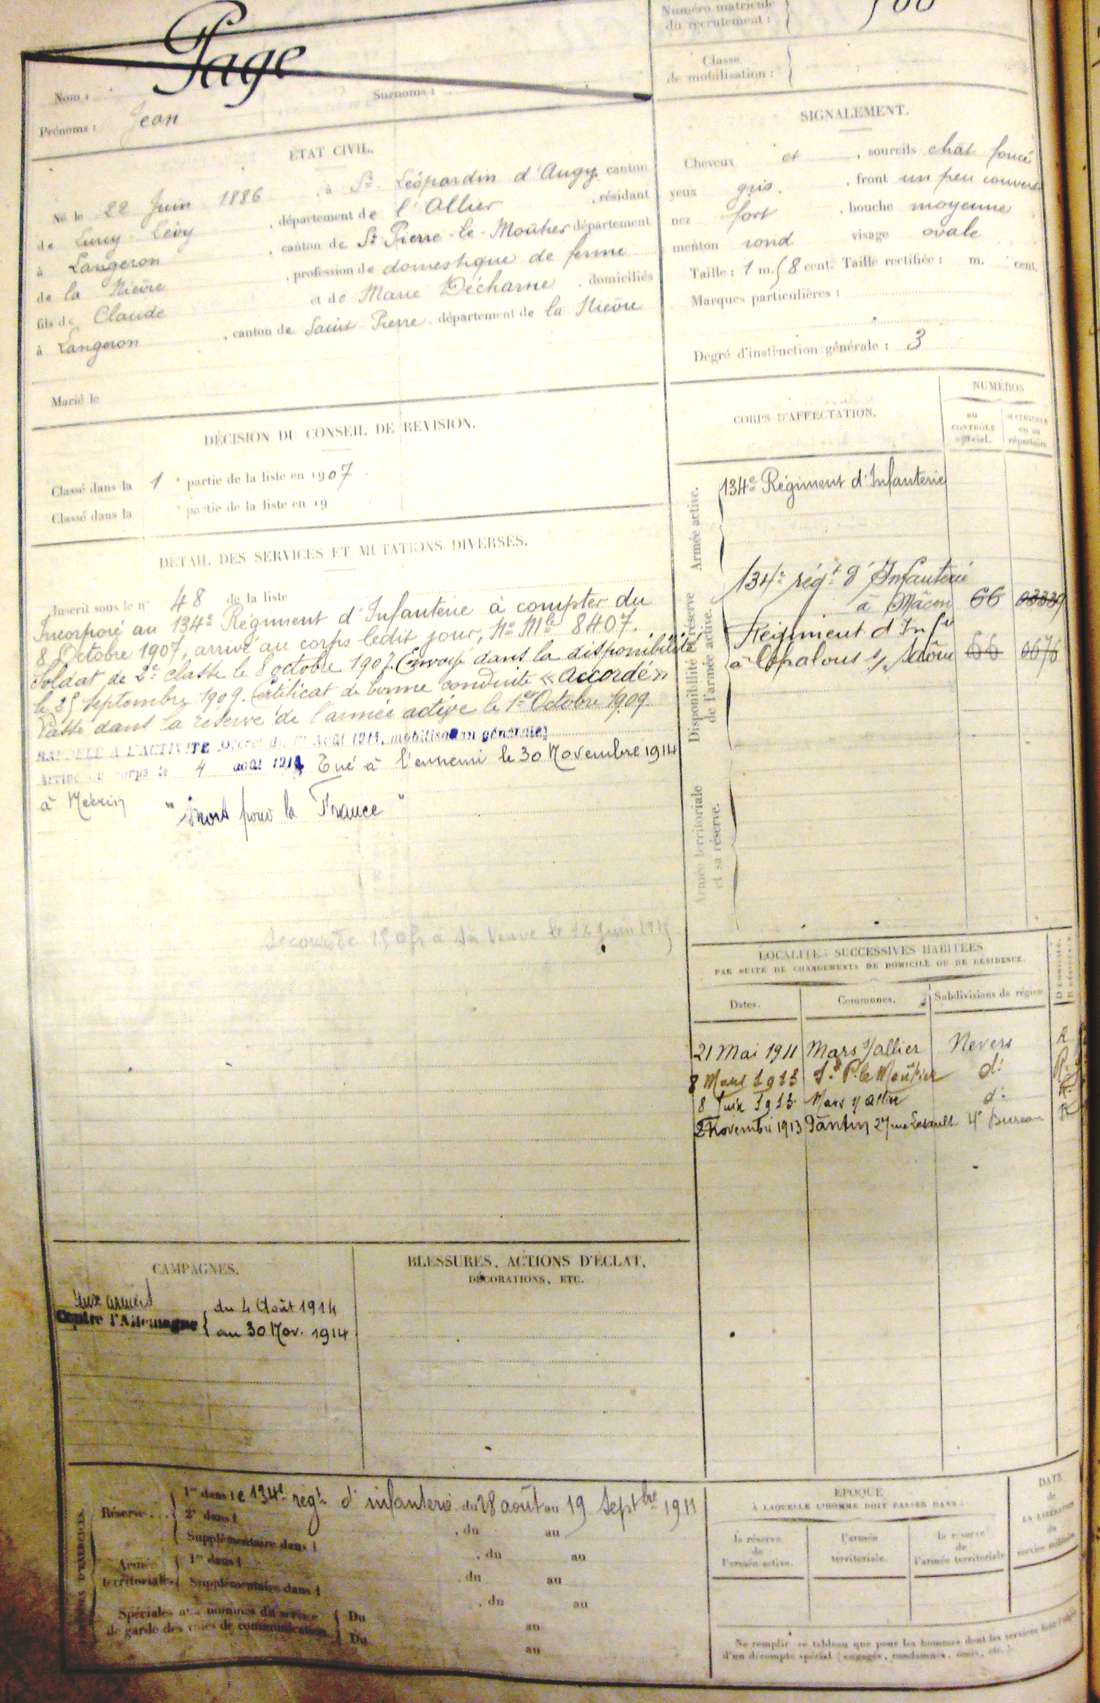 Numéro matricule
du recrutement :
Classe
de mobilisation :
Page
Nom :
Surnoms :
Prénoms : Jean
ÉTAT CIVIL.
Né le 22 Juin 1886, à St Léopardin d'Augy, canton
de Lurcy-Lévy, département de l'Allier, résidant
à Langeron, canton de St Pierre-le-Moûtier département
de la Nièvre, profession de domestique de ferme
fils de Claude et de Marie Décharne, domiciliés
à Langeron, canton de Saint Pierre, département de la Nièvre
Marié le
SIGNALEMENT.
Cheveux et, sourcils chat foncé
yeux gris, front un peu couvert
nez fort, bouche moyenne
menton rond visage ovale
Taille : 1 m. 58 cent. Taille rectifiée : m. cent.
Marques particulières :
Degré d'instruction générale : 3
DÉCISION DU CONSEIL DE RÉVISION.
Classé dans la 1e partie de la liste en 1907
Classé dans la e partie de la liste en 19
DÉTAIL DES SERVICES ET MUTATIONS DIVERSES.
Inscrit sous le n° 48 de la liste
Incorporé au 134e Régiment d'Infanterie à compter du
8 Octobre 1907, arrivé au corps ledit jour, No Mle 8407.
Soldat de 2e classe le 8 octobre 1907. Envoyé dans la disponibilité
le 25 septembre 1909. Certificat de bonne conduite « Accordé »
Passé dans la réserve de l'armée active le 1er Octobre 1909.
RAPPELÉ A L'ACTIVITÉ Décret du 1er Août 1914, mobilisation générale
Arrivé au corps le 4 août 1914 Tué à l'ennemi le 30 Novembre 1914
à
"Mort pour la France"
Secours de 150 fr à sa Veuve le Juin
CORPS D'AFFECTATION.
NUMÉROS
AU CONTRÔLE spécial.
MATRICULE ou au répertoire.
Armée active.
134e Régiment d'Infanterie
Disponibilité et réserve
de l'armée active.
134e régt d'Infanterie
à Mâcon 66
Régiment d'Infie
à Chalons s/ Saône 66 0676
Armée territoriale
et sa réserve.
LOCALITÉS SUCCESSIVES HABITÉES
PAR SUITE DE CHANGEMENTS DE DOMICILE OU DE RÉSIDENCE.
Dates. Communes. Subdivisions de région.
21 Mai 1911 Mars s/allier Nevers R
8 Mars 1913 St P. le Moûtier do R
8 Juin 1913 Mars s/ allier do R
2 Novembre 1913 Pantin 27 rue 4e Bureau R
CAMPAGNES.
BLESSURES, ACTIONS D'ÉCLAT,
DÉCORATIONS, ETC.
Aux armées
Contre l'Allemagne { du 4 Août 1914
au 30 Nov. 1914
Réserve... { 1re dans le 134e régt d'infanterie du 28 août au 19 Septbre 1911
2e dans l , du au
Supplémentaire dans l
Armée
territoriale { 1re dans l , du au
Supplémentaire dans l , du au
Spéciales aux hommes du service
de garde des voies de communication. { Du au
Du au
ÉPOQUE
À LAQUELLE L'HOMME DOIT PASSER DANS :
la réserve
de
l'armée active.
l'armée
territoriale.
la réserve
de
l'armée territoriale
DATE
de
LA LIBÉRATION
du
service militaire.
Ne remplir ce tableau que pour les hommes dont les services font l'objet
d'un décompte spécial (engagés, condamnés, omis, etc.).